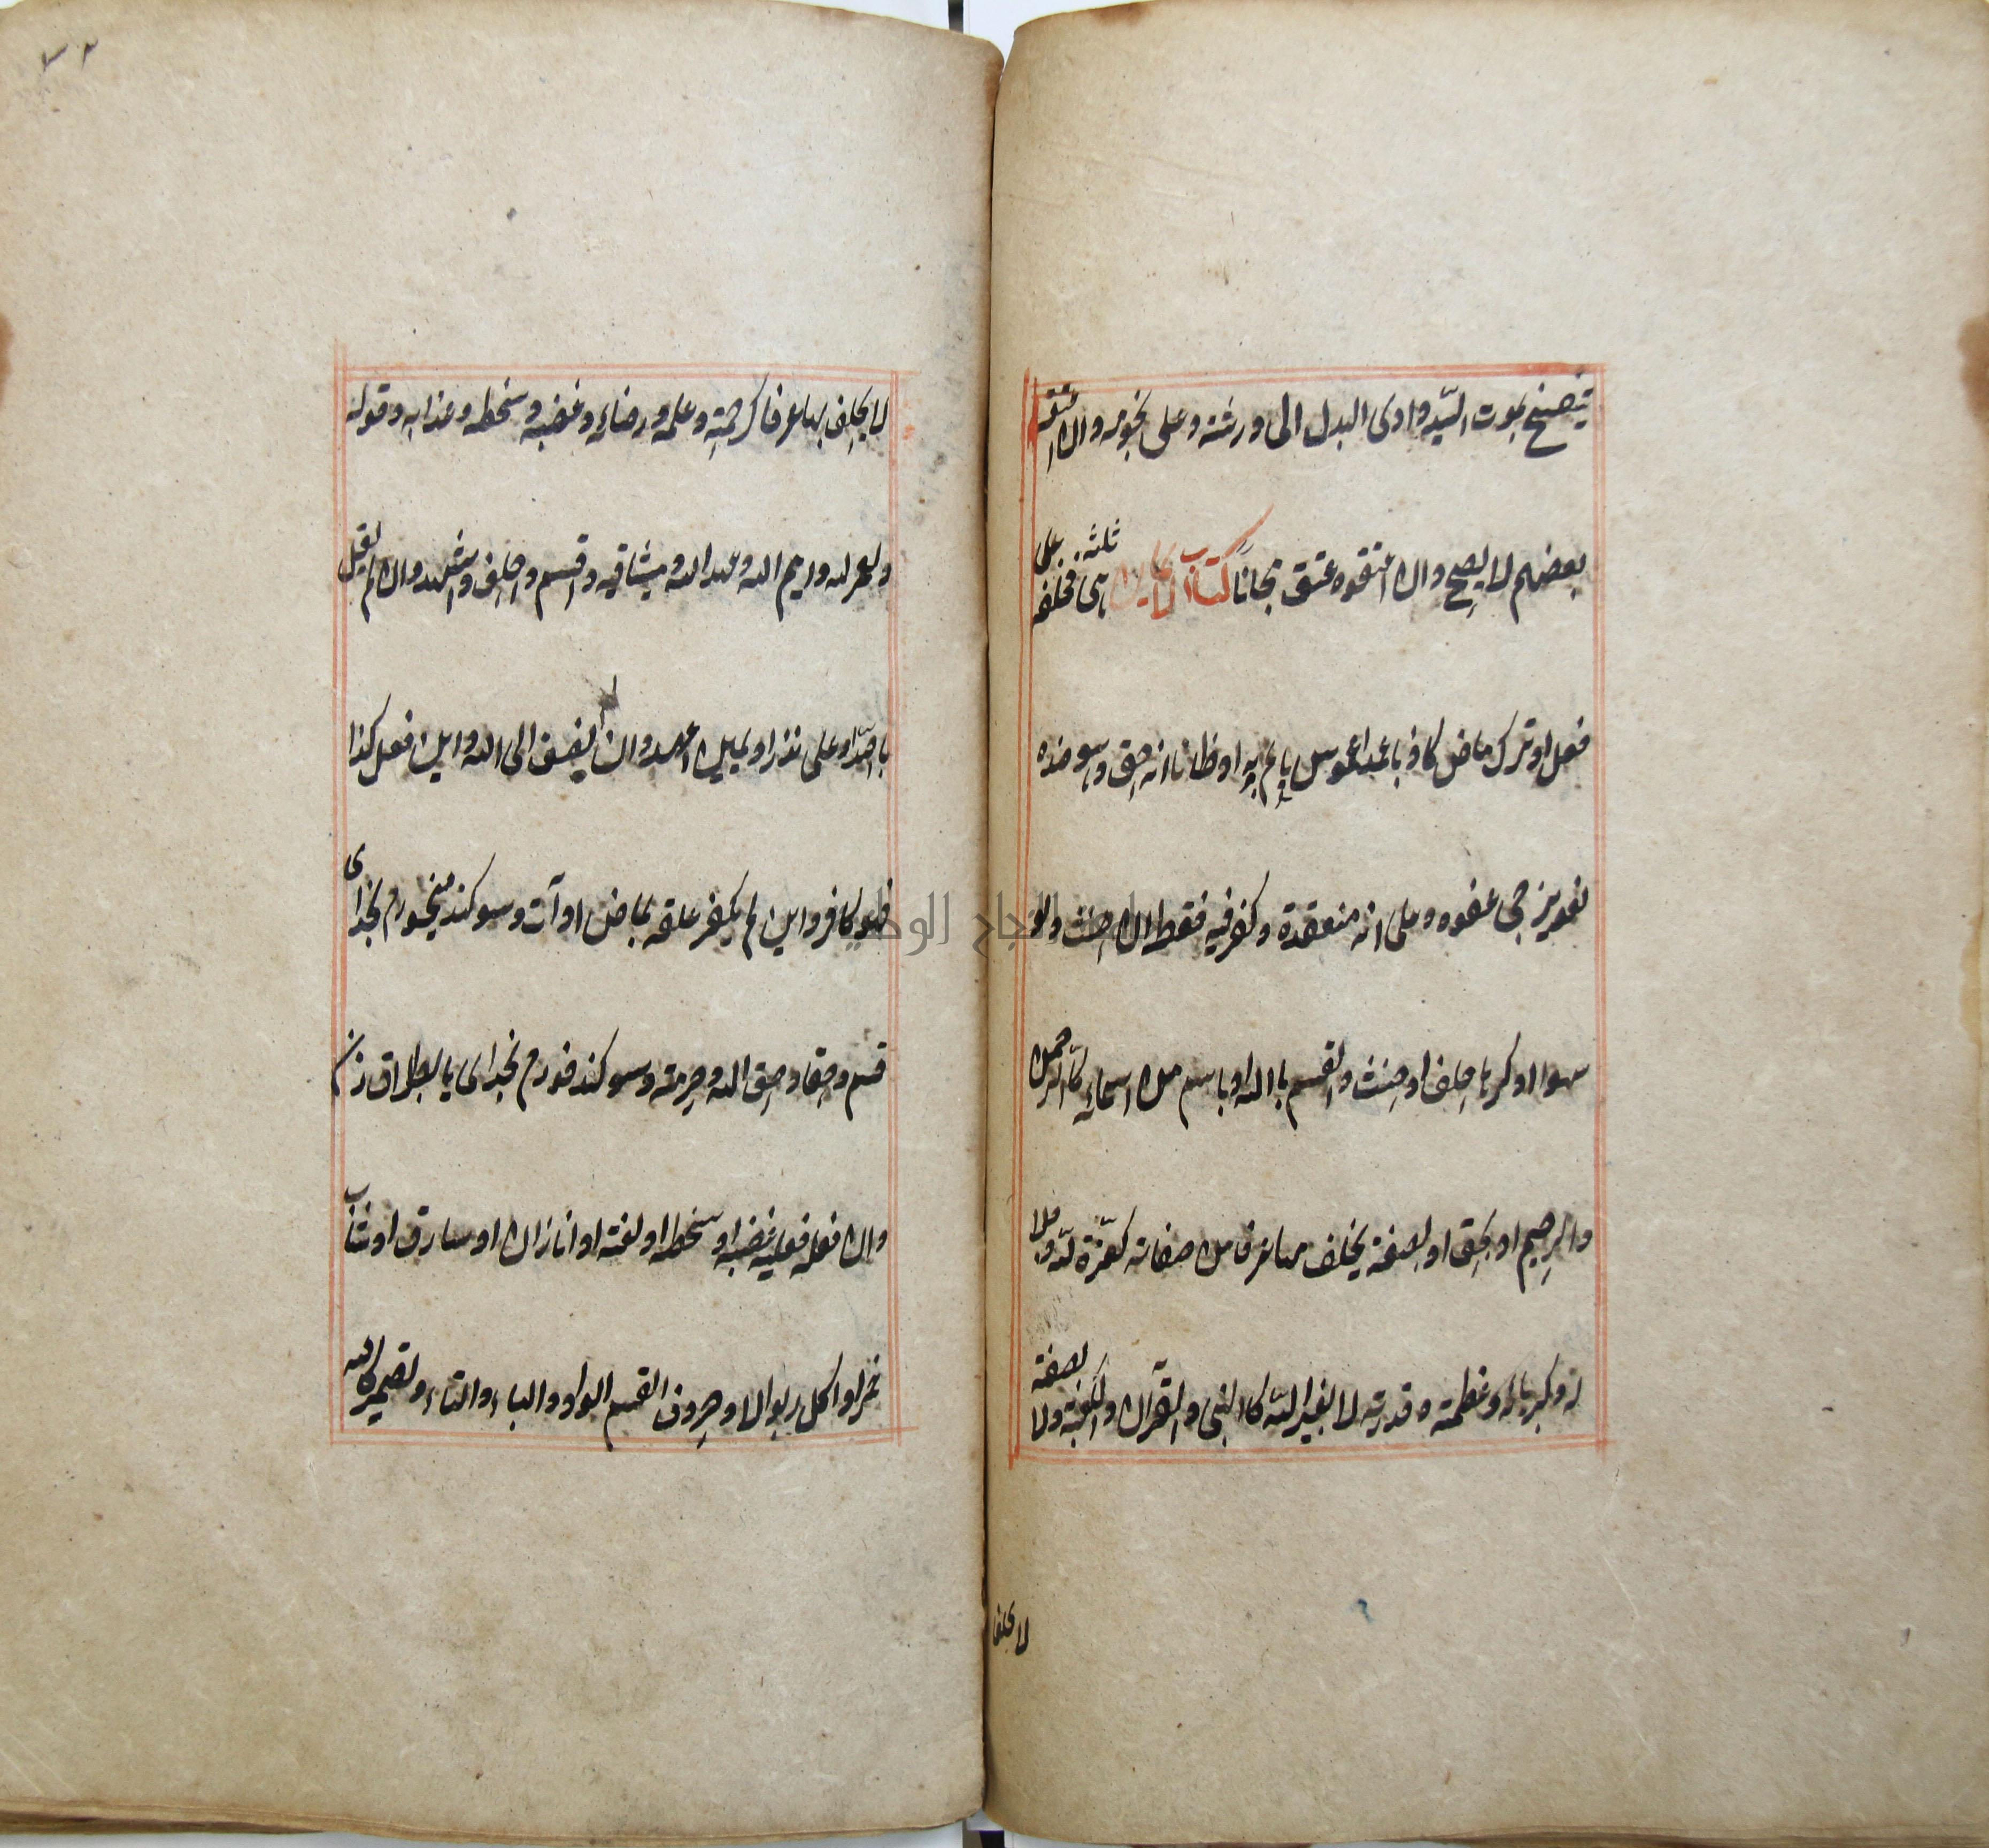 تنفسخ بموت السيد وادى البدل الى ورثته وعلى نجومه وان اعتقه
بعضهم لا يصح وان اعتقوه عتق مجانا كتاب الايمان هى ثلثة. على
فحلفه
فعل او ترك ماض كاذبا عمدا غموس ياثم به او ظانا انه حق وهو ضده
لغو يرجى عفوه وعلى انه منعقدة وكفر فيه فقط ان حنث ولو
سهوا او كرها حلف او حنث والقسم باالله او باسم من اسمائه كالرحمن
والرحيم او بحق او بصفة يحلف بها عرفا من صفاته كعزة الله وجلا
له وكبريائه وعظمته وقدرته لا بغير الله كالنبى والقرآن والكعبة ولا بصفة
لا يحلف
٧٢
لا يحلف بها عرفا كرحمته وعلمه ورضائه وغضبه وسخطه وعذابه وقوله
ولعمر الله وايم الله وعهد الله وميثاقه واقسم واحلف واشهد وان لم يقل
باالله وعلى نذر او يمين او عهد وان لم يضف الى الله وان فعل كذا
فهو كافر وان لم يكفر علقه بماض او آت وسوكند ميخورم بخداى
قسم وحقا وحق الله وحرمته وسوكند خورم بخداى يا بطلاق زن
وان فعله فعليه غضبه او سخطه او لعنته او انا زان او سارق او شارب
خمر او اكل ربوا لا وحروف القسم الواو والباء والتاء وتضمر كالله